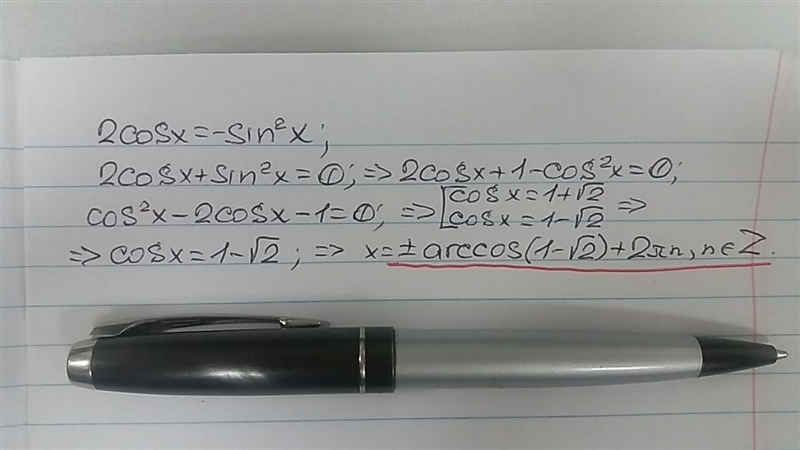 2cosx=-sin²x;
2cosx+sin²x=0; => 2cosx+1-cos²x=0;
cos²x-2cosx-1=0; => [cosx=1+√2 cosx=1-√2 =>
=> cosx=1-√2; => x=±arccos(1-√2)+2πn, n∈Z.